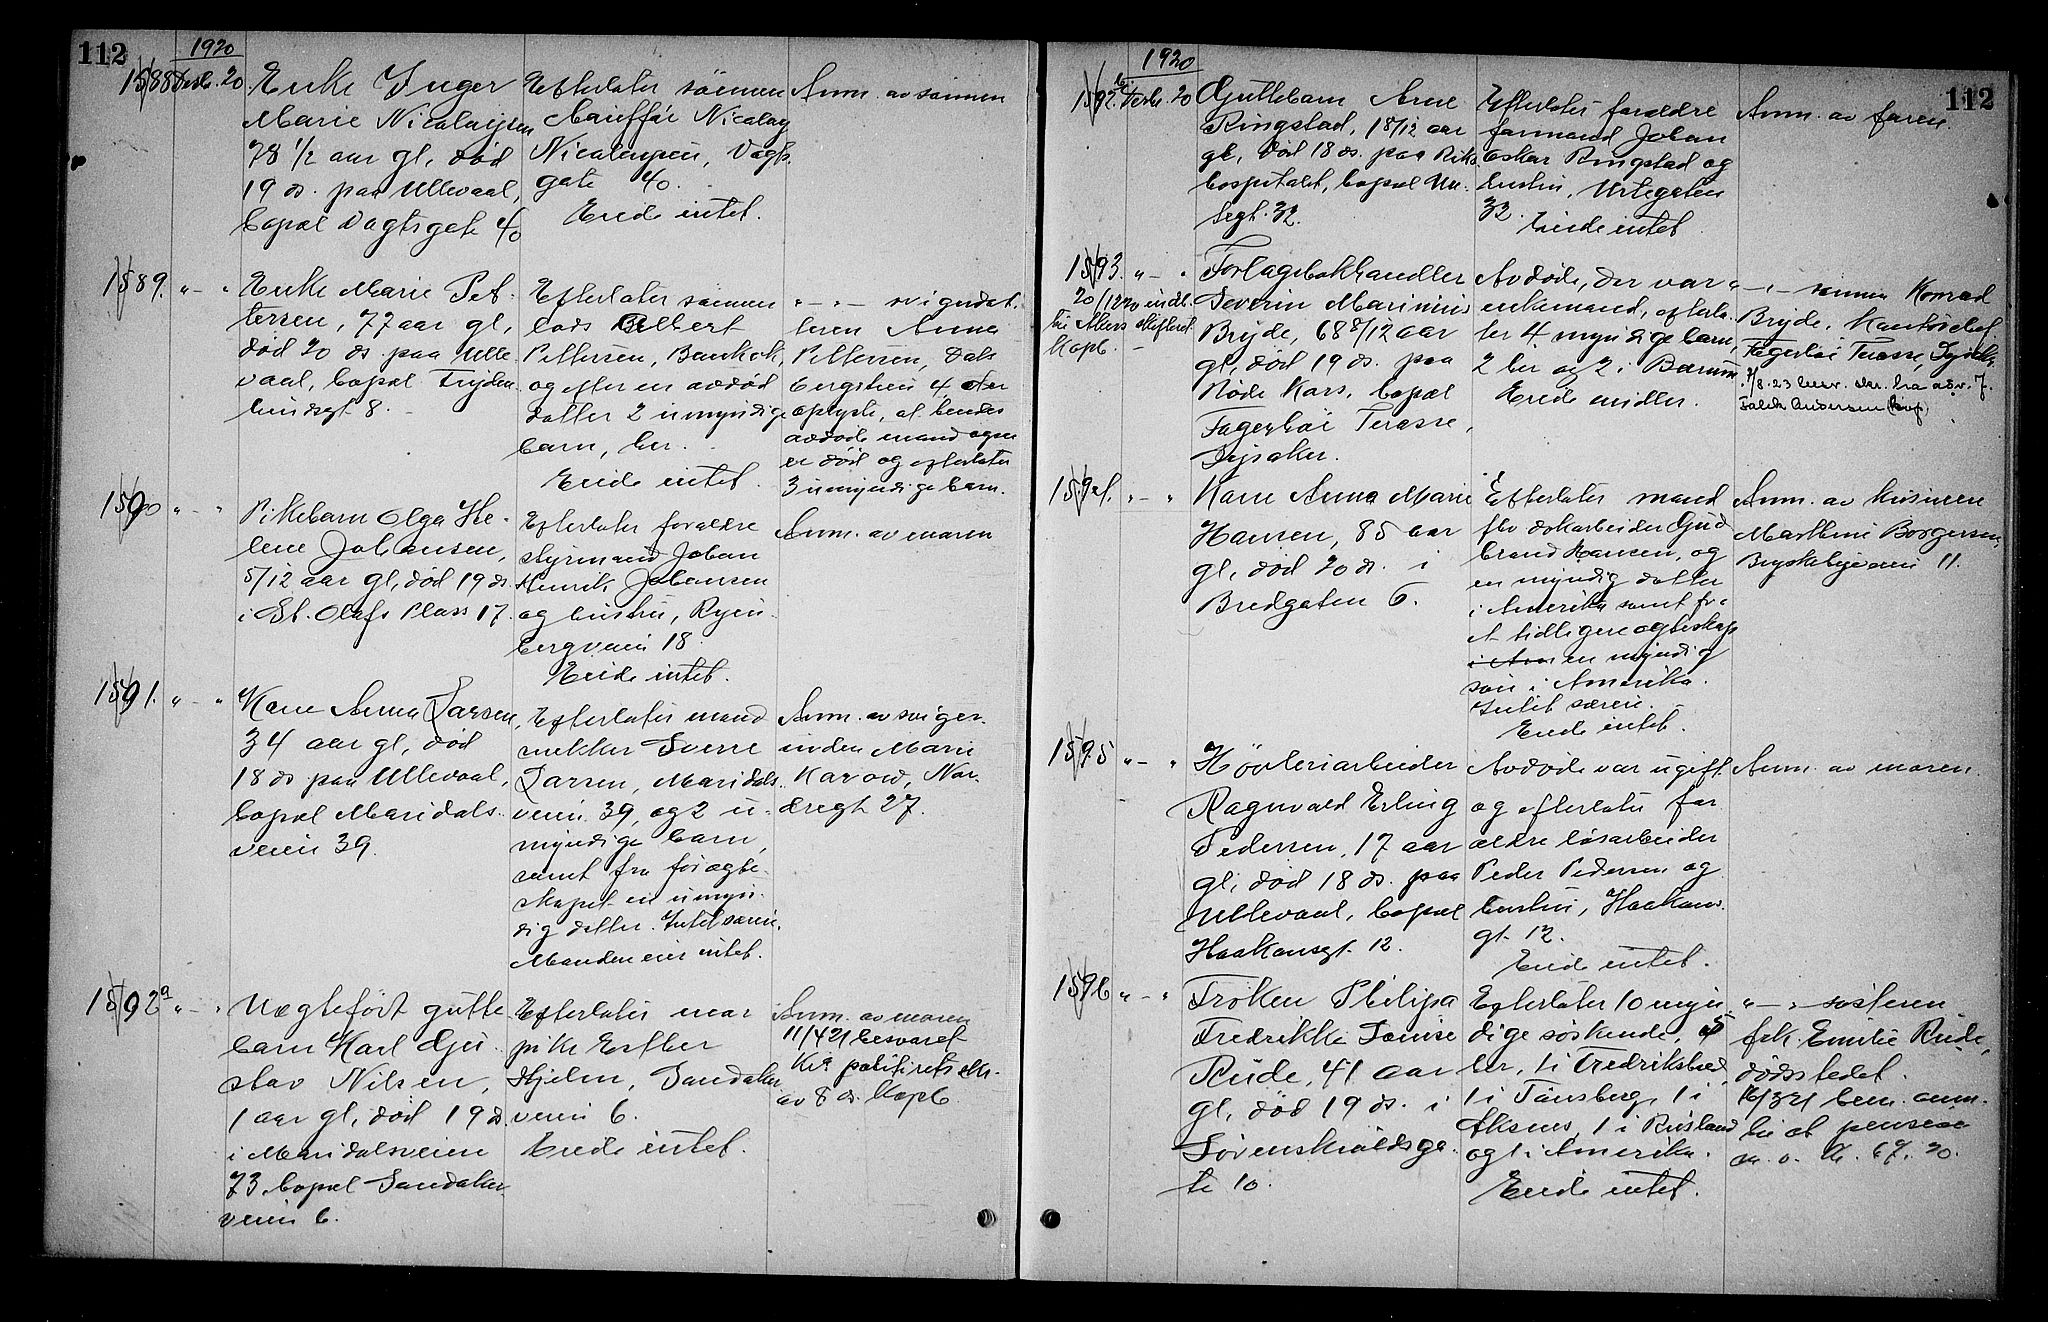 112
1920
1588 Desb. 20.
Enke Inger
Marie Nicolaysen
78 1/2 aar gl, død
19 ds. paa Ullevaal,
bopæl Vogtsgate 40
Efterlater sønnen
Nicolay
Nicolaysen, Vogts
gate 40.
Eiede intet.
Anm. av sønnen
1589. " - "
Enke Marie Pet-
tersen, 77 aar gl,
død 20 ds. paa Ulle-
vaal, bopæl Fryden-
lundsgt 8.
Efterlater sønnen
lods Albert
Pettersen,
og efter en avdød
datter 2 umyndige
barn, her.
Eiede intet.
" - " - svigerdat-
teren Anna
Pettersen, Dals-
bergstien 4 der
oplyste, at hendes
avdøde mand ogsaa
er død og efterlater
3 umyndige barn.
1590 " - "
Pikebarn Olga He-
lene Johansen,
5/12 aar gl, død 19 ds
i St. Olafs Plass 17.
Efterlater forældre
styrmand Johan
Henrik Johansen
og hustru, Ryen-
bergveien 18.
Eiede intet.
Anm. av moren
1591. " - "
Kone Anna Larsen,
34 aar gl, død
18 ds paa Ullevaal,
bopæl Maridals-
veien 39.
Efterlater mand
snekker Sverre
Larsen, Maridals-
veien 39, og 2 u-
myndige barn,
samt fra før egte-
skapet en umyn-
dig datter. Intet særeie.
Manden eier intet.
Anm. av sviger-
inden Marie
Karow, Nor-
dregt 27.
1592 a " - "
Uegtefødt gutte-
barn Karl Gu-
stav Nilsen,
1 aar gl, død 19 ds.
i Maridalsveien
73 bopæl Sandaker-
veien 6.
Efterlater mor
pike Esther
Hjelm, Sandaker-
veien 6.
Eiede intet.
Anm. av moren
11/4 21 besvaret
Kra politirets skr.
av 8 ds. Kopb.
112
1920
1592 b Desbr. 20
Guttebarn Arne
Ringstad, 18/12 aar
gl, død 18 ds. paa Riks-
hospitalet, bopæl Ur-
tegt. 32.
Efterlater forældre
formand Johan
Oskar Ringstad og
hustru, Urtegaten
32. Eiede intet.
Anm. av faren.
1593. " - "
20/12 20 indb.
til Akers skifteret
Kopb.
Forlagsbokhandler
Severin Marinius
Bryde, 68 8/12 aar
gl, død 19 ds. paa
Røde Kors, bopæl
Fagerhøi Terasse,
Lysaker.
Avdøde, der var
enkemand, efterla-
ter 4 myndige barn,
2 her og 2 i Bærum.
Eiede midler.
" - " - sønnen Konrad
Bryde, Kontorchef
Fagerhøi Terasse, Lysaker
3/8.23 besv. skr. fra adv. J.
Falck Andersen (kop)
1594. " - "
Kone Anna Marie
Hansen, 85 aar
gl, død 20 ds. i
Bredgaten 6.
Efterlater mand
fhv dokarbeider Gud-
brand Hansen, og
en myndig datter
i Amerika samt fr-
et tidligere egteskap
i Am en myndig
søn i Amerika.
Intet særeie.
Eiede intet.
Anm. av kusinen
Marthine Borgersen,
11.
1595 " - "
Høvleriarbeider
Ragnvald Erling
Pedersen, 17 aar
gl, død 18 ds. paa
Ullevaal, bopæl
Haakonsgt. 12.
Avdøde var ugift
og efterlater for-
ældre løsarbeider
Peder Pedersen og
hustru, Haakons-
gt. 12.
Eiede intet.
Anm. av moren.
1596 " - "
Frøken Philipa
Fredrikke Louise
Rude, 41 aar
gl, død 19 ds. i
Jørenskioldsga-
te 10.
Efterlater 10 myn-
dige søskende, 5
her, 1 i Fredrikstad,
1 i Tønsberg, 1 i
Aksnes, 1 i Rusland
og 1 i Amerika.
Eiede intet.
" - " søsteren
frk. Emilie Rude,
dødsstedet.
16/3 21 bem. anm.
til at pension
av o. Kr. 67.20.